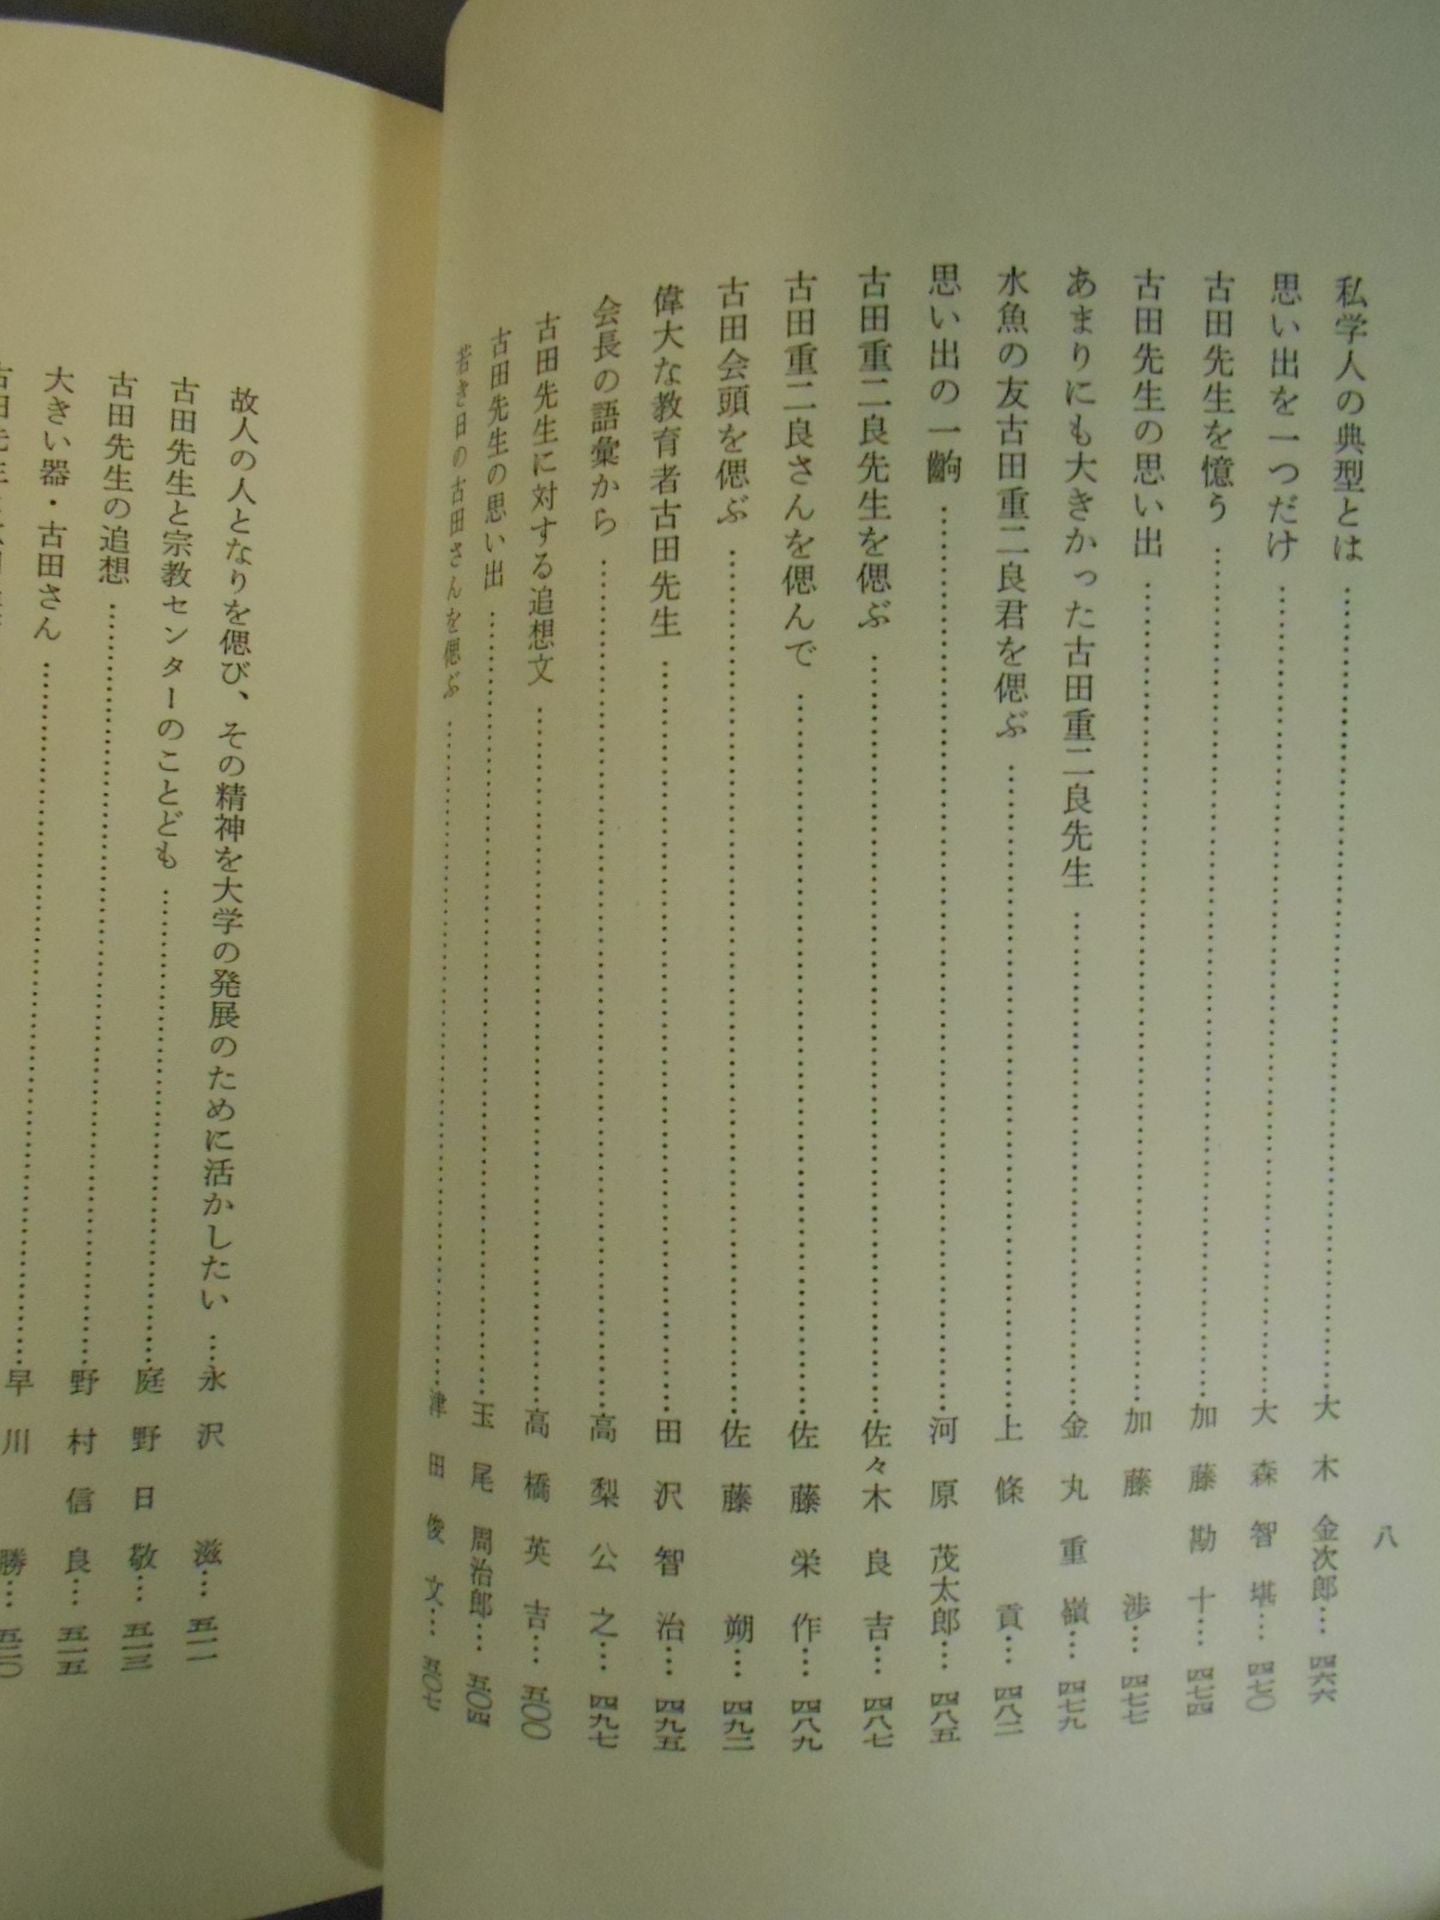 八
私学人の典型とは……大木金次郎…四六六
思い出を一つだけ……大森智堪…四七〇
古田先生を憶う……加藤勘十…四七四
古田先生の思い出……加藤渉…四七七
あまりにも大きかった古田重二良先生……金丸重嶺…四七九
水魚の友古田重二良君を偲ぶ……上條貢…四八二
思い出の一齣……河原茂太郎…四八五
古田重二良先生を偲ぶ……佐々木良吉…四八七
古田重二良さんを偲んで……佐藤栄作…四八九
古田会頭を偲ぶ……佐藤朔…四九二
偉大な教育者古田先生……田沢智治…四九五
会長の語彙から……高梨公之…四九七
古田先生に対する追想文……高橋英吉…五〇〇
古田先生の思い出……玉尾周治郎…五〇四
若き日の古田さんを偲ぶ……津田俊文…五〇七
故人の人となりを偲び、その精神を大学の発展のために活かしたい…永沢滋…五一一
古田先生と宗教センターのことども……庭野日敬…五一三
古田先生の追想……野村信良…五一五
大きい器・古田さん……早川勝…五二〇